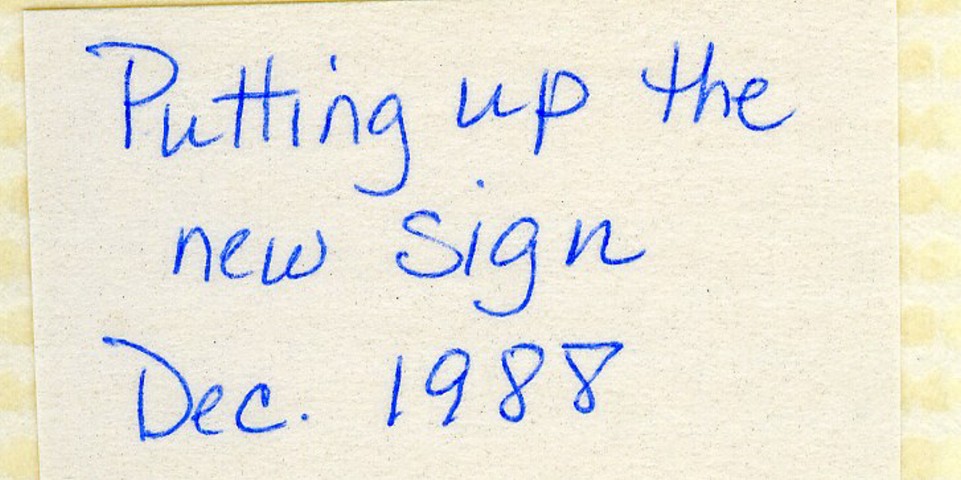 Putting up the
new sign
Dec. 1988